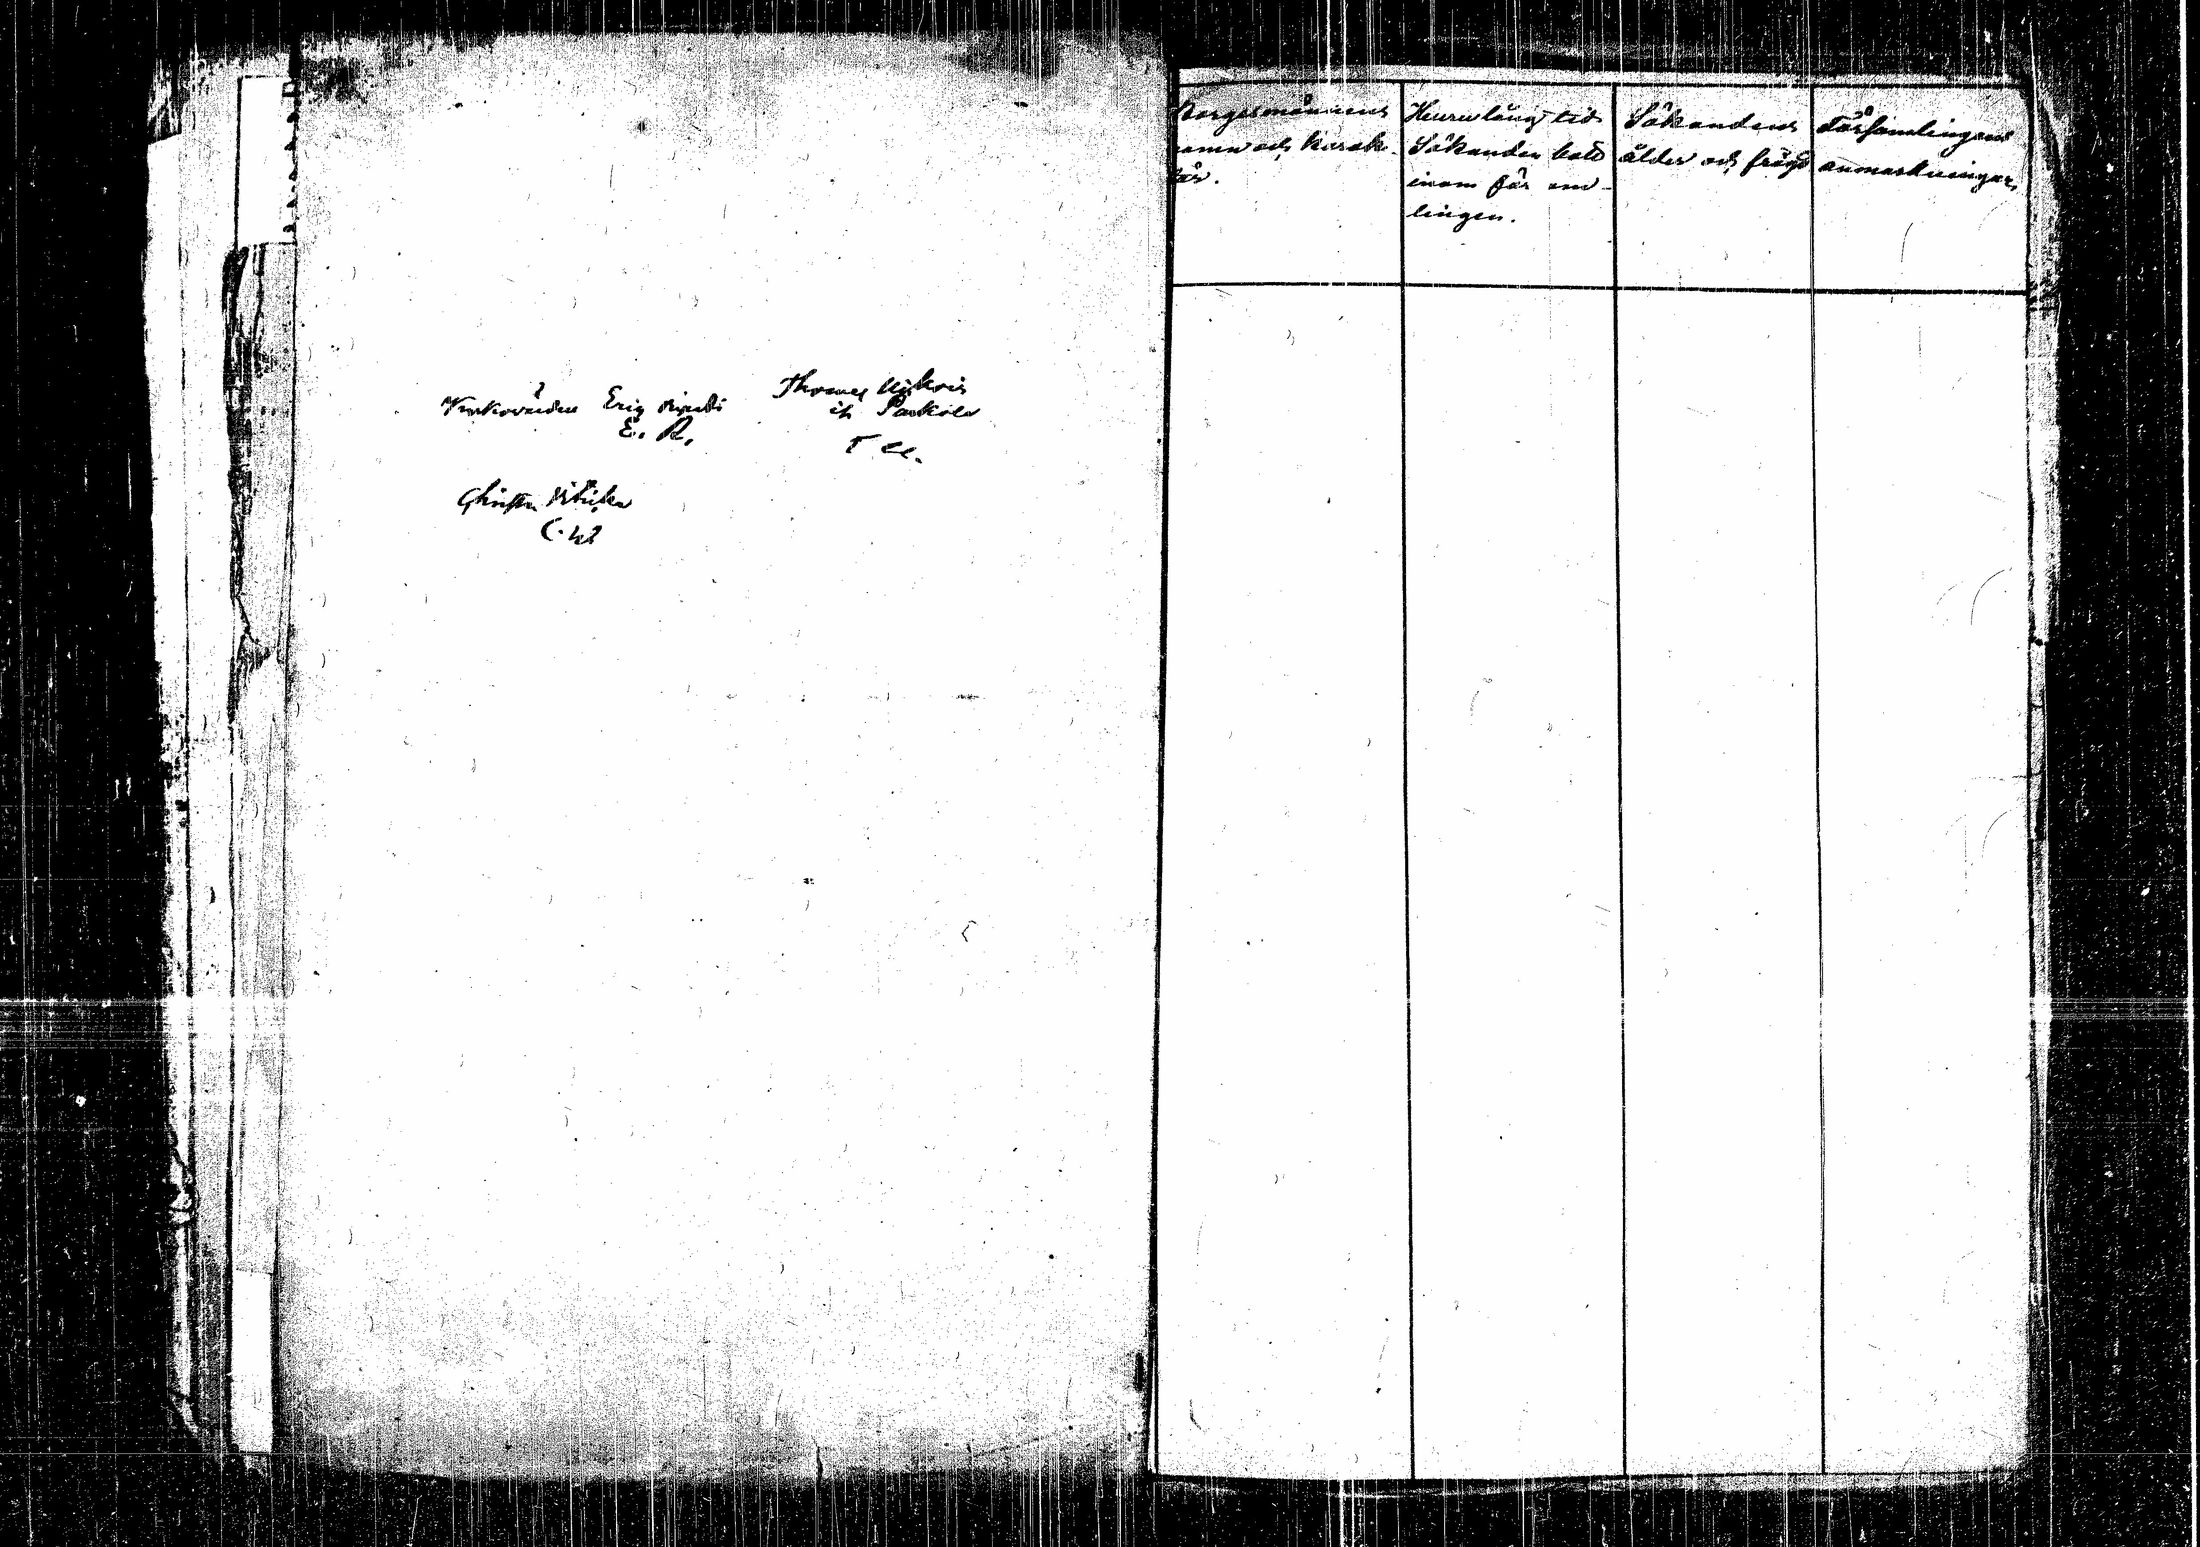 Kyrkovärden Erig
E. R.
Thomas
ifr
T U.
Christer
C. W
Borgesmännens
namn och karak-
tär.
Huru lång tid
Sökanden bott
inom för am-
lingen.
Sökandens
ålder och frägd
Församlingens
anmärkningar,